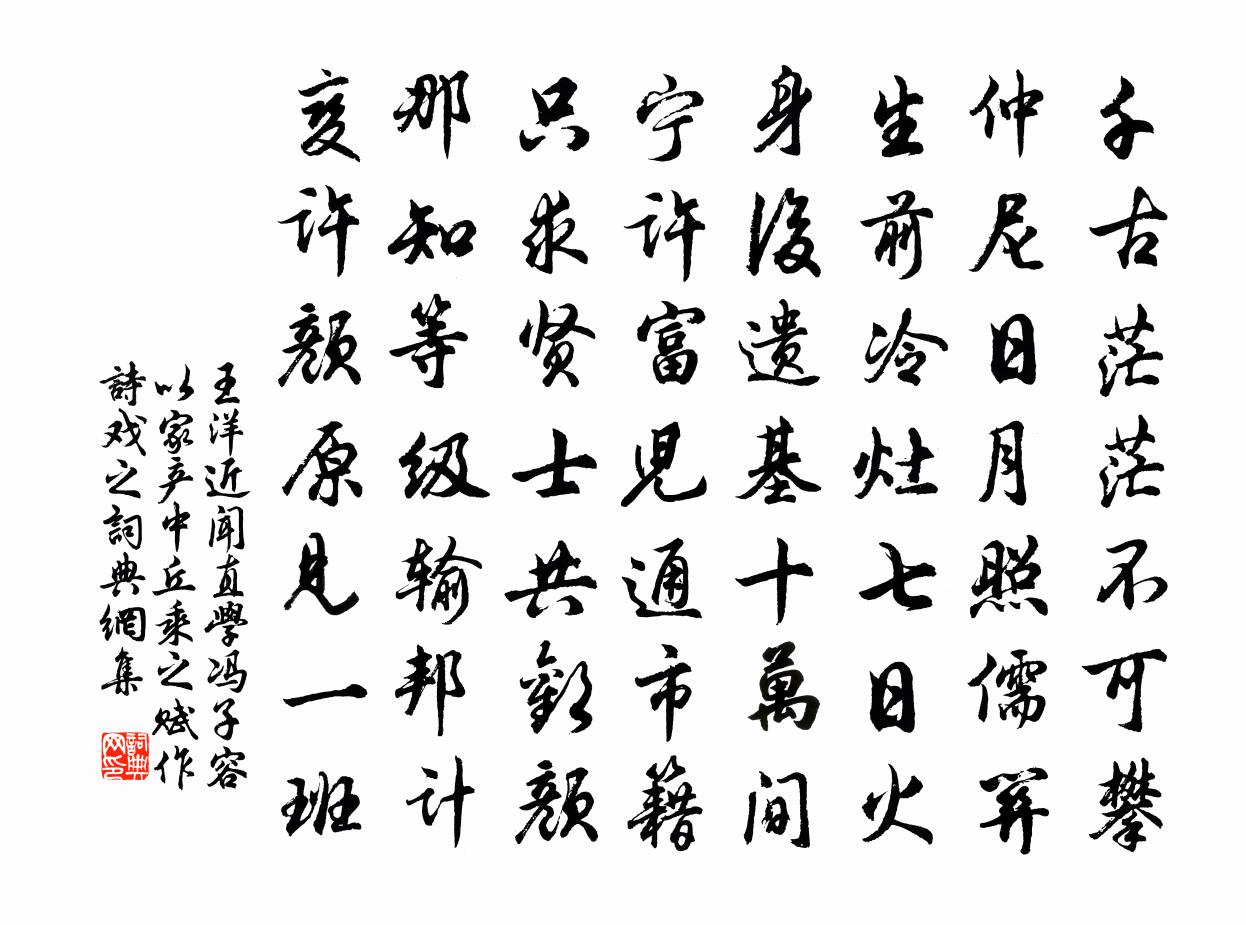 千古茫茫不可攀
仲尼日月照儒關
生前冷灶七日火
身後遗基十萬间
宁许富児通市籍
只求贤士共歡颜
那知等级输邦计
変许颜原见一班
王洋近闻直學冯子容
以家产中丘乘之赋作
詩戏之詞典網集
詞典网印